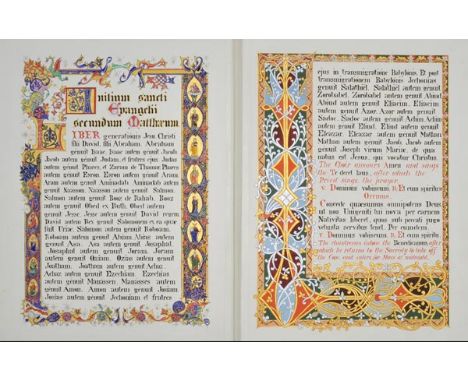 Initium sancti
Evangelii
secundum Matthæum
LIBER generationis Jesu Christi
filii David, filii Abraham. Abraham
genuit Isaac. Isaac autem genuit Jacob.
Jacob autem genuit Judam, et fratres ejus. Judas
autem genuit Phares, et Zaram de Thamar. Phares
autem genuit Esron. Esron autem genuit Aram.
Aram autem genuit Aminadab. Aminadab autem
genuit Naasson. Naasson autem genuit Salmon.
Salmon autem genuit Booz de Rahab. Booz
autem genuit Obed ex Ruth. Obed autem
genuit Jesse. Jesse autem genuit David regem
David autem Rex genuit Salomonem ex ea quæ
fuit Uriæ. Salomon autem genuit Roboam.
Roboam autem genuit Abiam. Abias autem
genuit Asa. Asa autem genuit Josaphat.
Josaphat autem genuit Joram. Joram
autem genuit Oziam. Ozias autem genuit
Joatham. Joatham autem genuit Achaz.
Achaz autem genuit Ezechiam. Ezechias
autem genuit Manassen. Manasses autem
genuit Amon. Amon autem genuit Josiam.
Josias autem genuit Jechoniam et fratres
ejus in transmigratione Babylonis. Et post
transmigrationem Babylonis: Jechonias
genuit Salathiel. Salathiel autem genuit
Zorobabel. Zorobabel autem genuit Abiud.
Abiud autem genuit Eliacim. Eliacim
autem genuit Azor. Azor autem genuit
Sadoc. Sadoc autem genuit Achim. Achim
autem genuit Eliud. Eliud autem genuit
Eleazar. Eleazar autem genuit Mathan.
Mathan autem genuit Jacob. Jacob autem
genuit Joseph virum Mariæ, de qua
natus est Jesus, qui vocatur Christus.
The Choir answers Amen and sings
the Te deum laus, after which the
Priest sings the prayer
V. Dominus vobiscum. R. Et cum spiritu
Oremus.
Concede quæsumus omnipotens Deus
ut nos Unigeniti tui nova per carnem
Nativitas liberet, quos sub peccati jugo
vetusta servitus tenet. Per eumdem.
V. Dominus vobiscum. R. Et cum spiritu
The choristers intone the Benedicamus after
which he returns to the Sacristy to take off
the Cope and